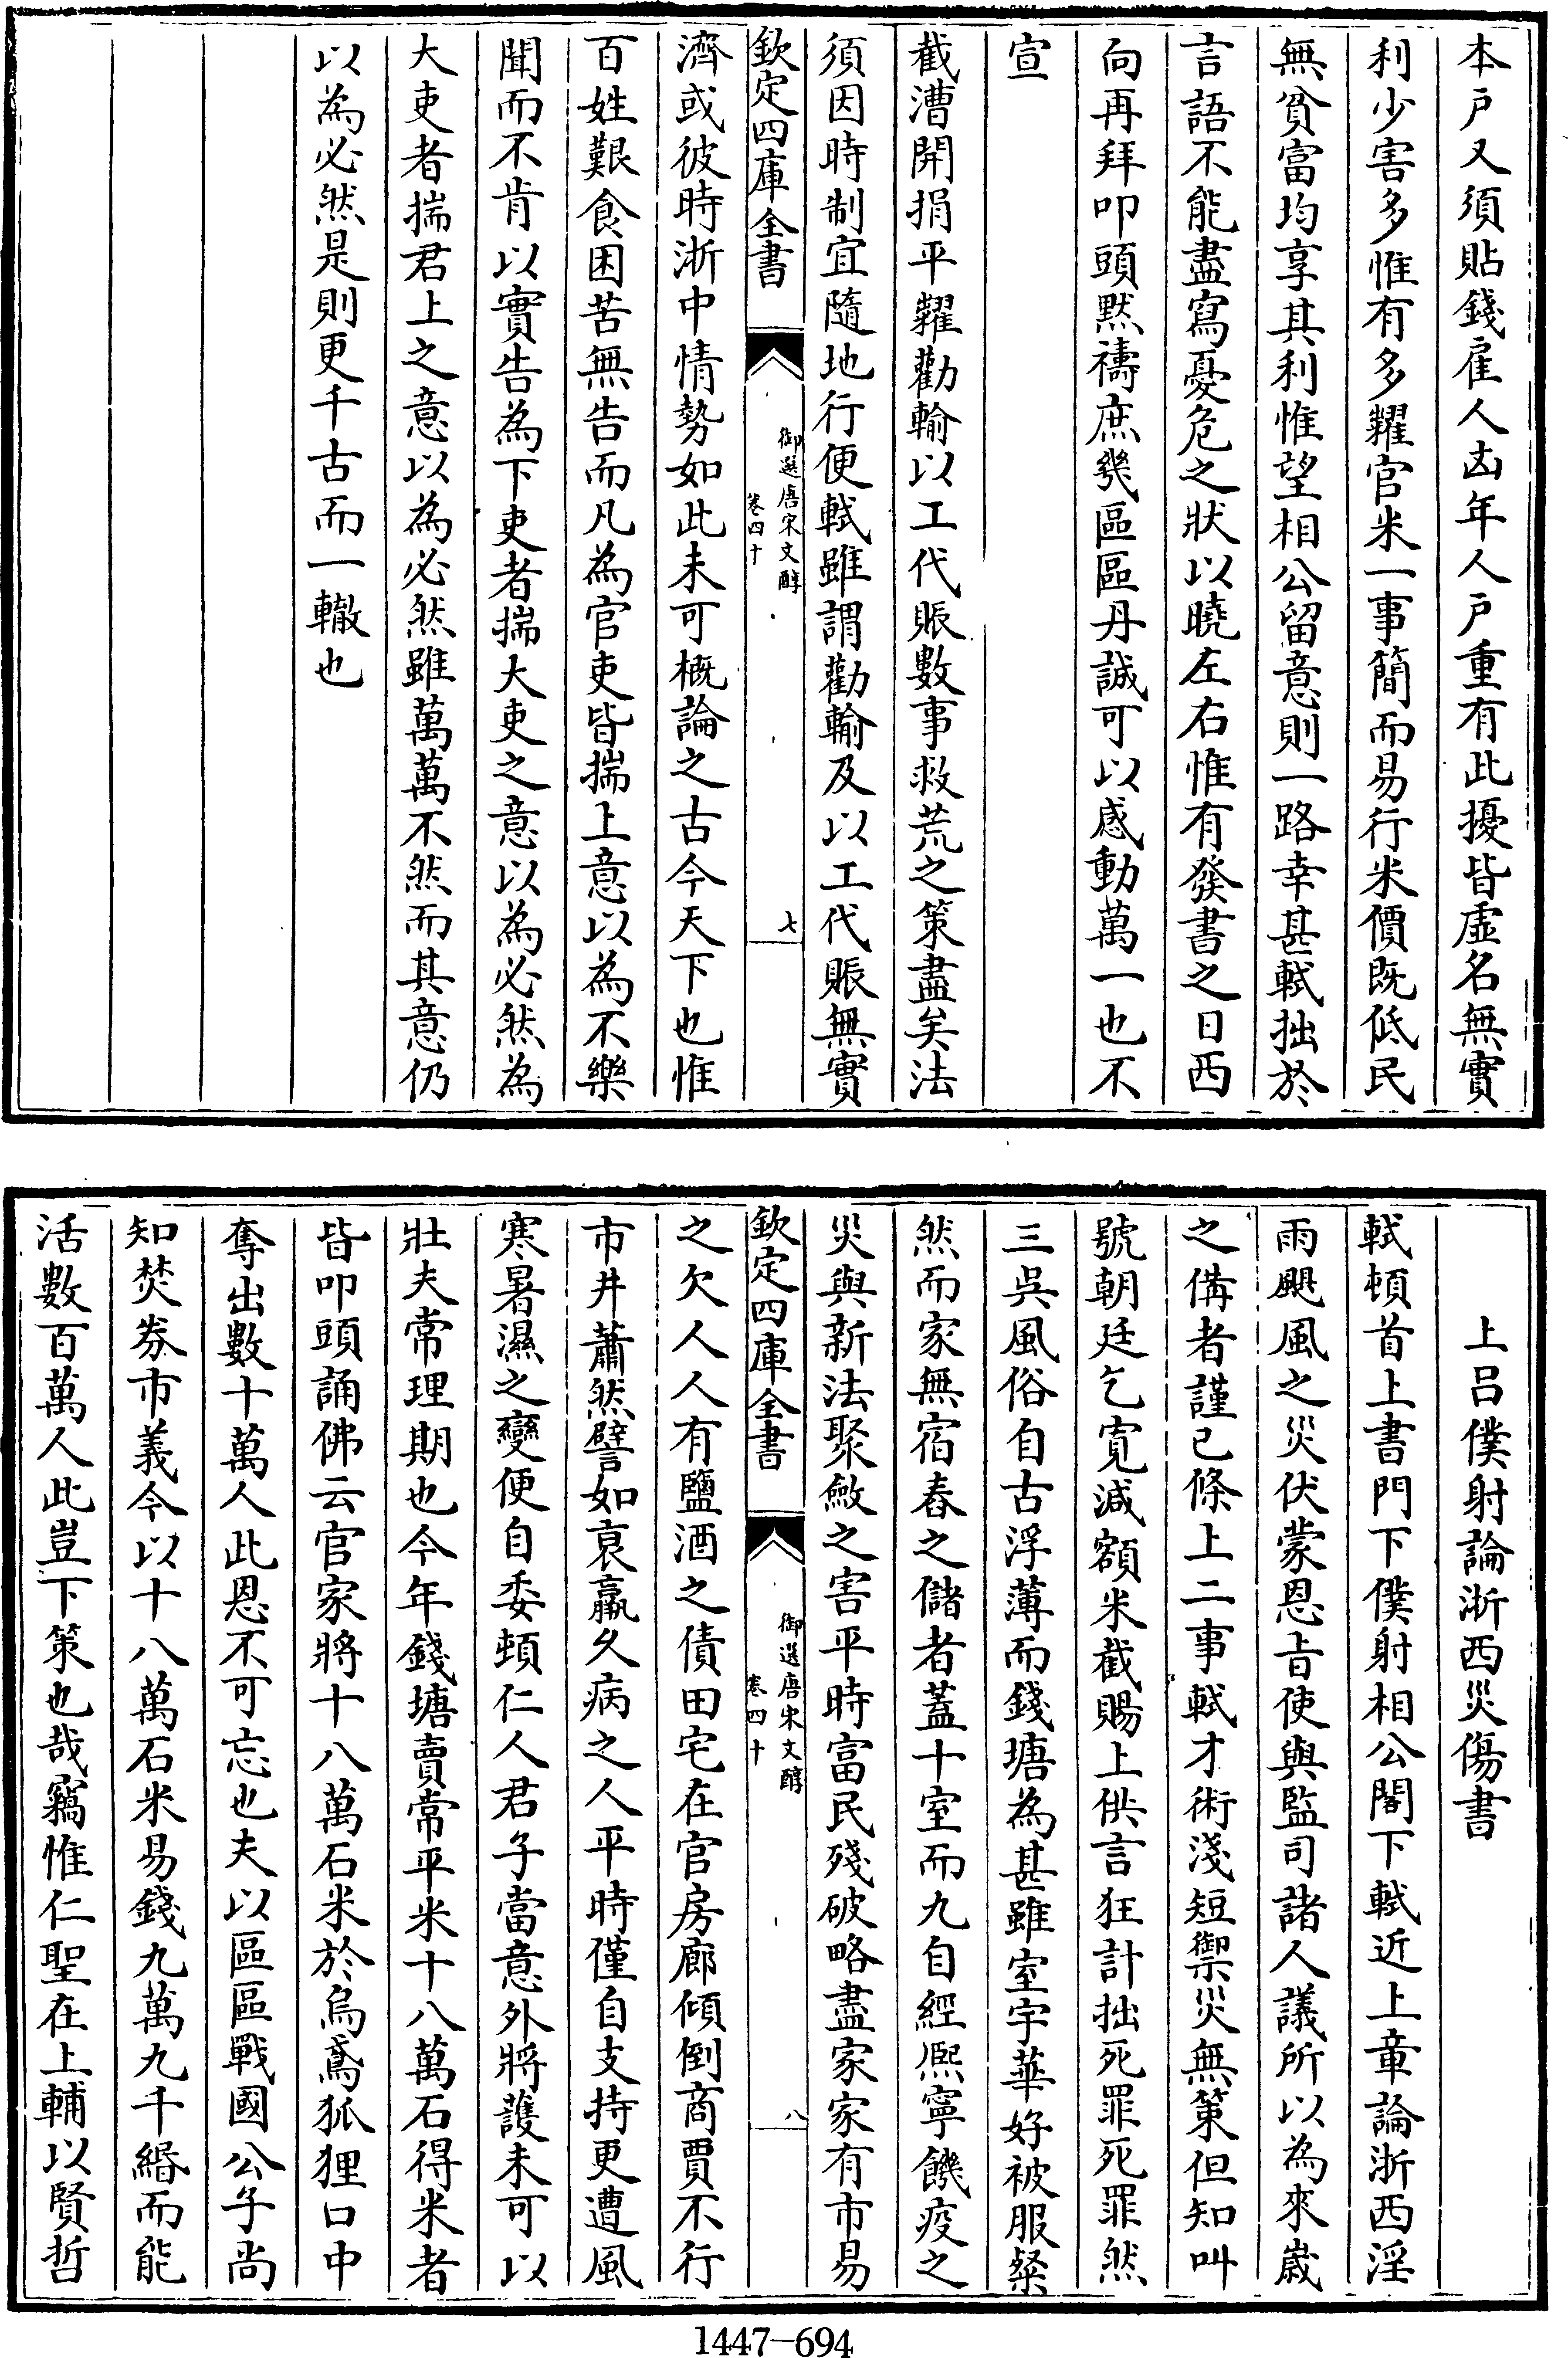 本戸又須貼錢雇人凶年人戸重有此擾皆虛名無實
利少害多惟有多糶官米一事簡而易行米價既低民
無貧富均享其利惟望相公留意則一路幸甚軾拙於
言語不能盡寫憂危之狀以曉左右惟有發書之日西
向再拜叩頭黙禱庶幾區區丹誠可以感動萬一也不
宣
截漕開捐平糶勸輸以工代賑數事救荒之策盡矣法
須因時制宜隨地行便軾雖謂勸輸及以工代賑無實
欽定四庫全書
御選唐宋文醇
卷四十
七
濟或彼時浙中情勢如此未可槪論之古今天下也惟
百姓艱食困苦無告而凡為官吏皆揣上意以為不樂
聞而不肯以實告為下吏者揣大吏之意以為必然為
大吏者揣君上之意以為必然雖萬萬不然而其意仍
以為必然是則更千古而一轍也
上呂僕射論浙西災傷書
軾頓首上書門下僕射相公閣下軾近上章論浙西淫
雨颶風之災伏蒙恩旨使與監司諸人議所以為來嵗
之備者謹已條上二事軾才術淺短禦災無策但知叫
號朝廷乞寛減額米截賜上供言狂計拙死罪死罪然
三吳風俗自古浮薄而錢塘為甚雖室宇華好被服粲
然而家無宿舂之儲者蓋十室而九自經熈寧饑疫之
災與新法聚斂之害平時富民殘破略盡家家有市易
欽定四庫全書
御選唐宋文醇
卷四十
八
之欠人人有鹽酒之債田宅在官房廊傾倒商賈不行
市井蕭然譬如衰羸久病之人平時僅自支持更遭風
寒暑濕之變便自委頓仁人君子當意外將護未可以
壯夫常理期也今年錢塘賣常平米十八萬石得米者
皆叩頭誦佛云官家將十八萬石米於烏鳶狐狸口中
奪出數十萬人此恩不可忘也夫以區區戰國公子尚
知焚劵市義今以十八萬石米易錢九萬九千緡而能
活數百萬人此豈下策也哉竊惟仁聖在上輔以賢哲
1447-694